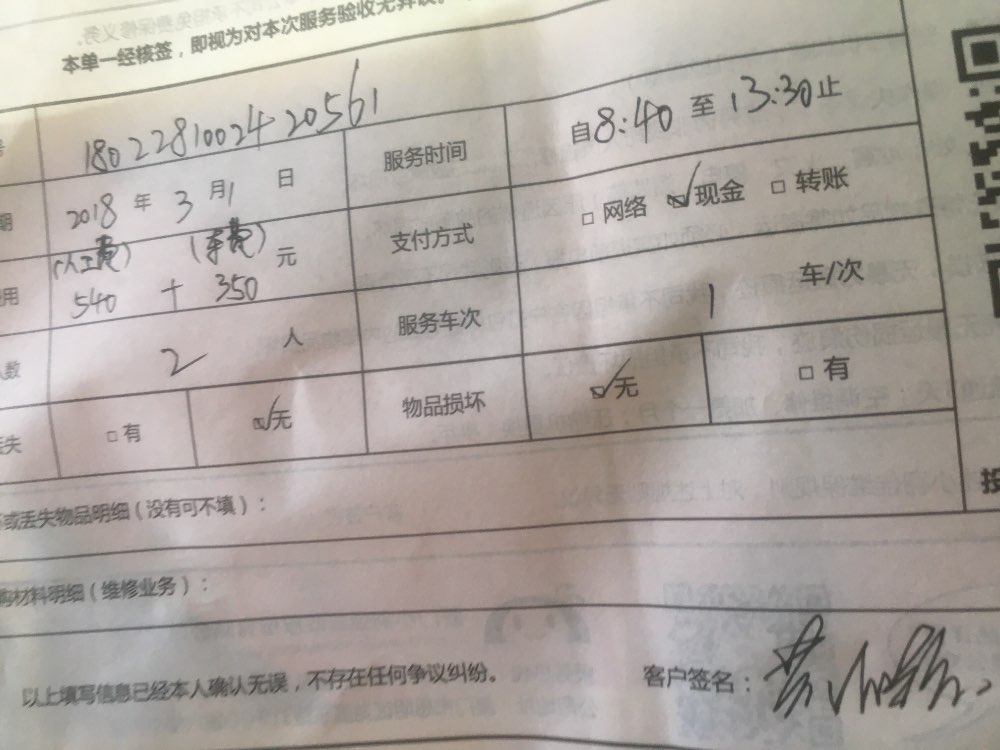 本单一经核签，即视为对本次服务验收无异议。
180228100242056 1
服务时间
自8:40 至 13:30止
2018 年 3 月 1 日
支付方式
□网络 ☑现金 □转账
(人工费) (车费)
540 + 350 元
用
服务车次
1 车/次
人数
2 人
失
□有
☑无
物品损坏
☑无
□有
或丢失物品明细（没有可不填）：
购材料明细（维修业务）：
以上填写信息已经本人确认无误，不存在任何争议纠纷。
客户签名：